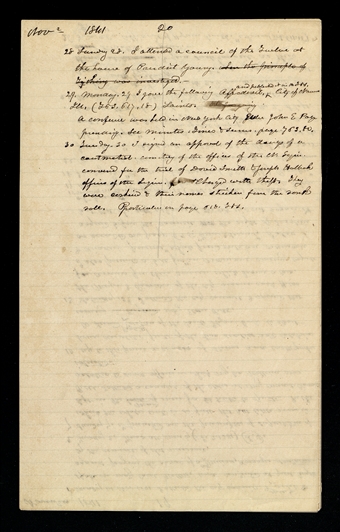 Nov 1841 20
28 Sunday 28. I attended a council of the Twelve at
the house of President Young. when the principle of
Tything was investigated.
29. Monday, 29 I gave the following Affidavit, and published in a , City of Nauvoo
Ills. (T&S. 61), (18) Same
A conference was held in New York city Elder John E. Page
presiding. See minutes Times & Seasons, page 763, &c.
30 Tuesday 30. I signed an approval of the doings of a
courtmartial consisting of the officers of the Legion
convened for the trial of David Smith & Joseph Hollock
officers of the Legion. Charged with theft. They
were cashiered & their names stricken from the rank
roll. Particulars on page 618. T&S.